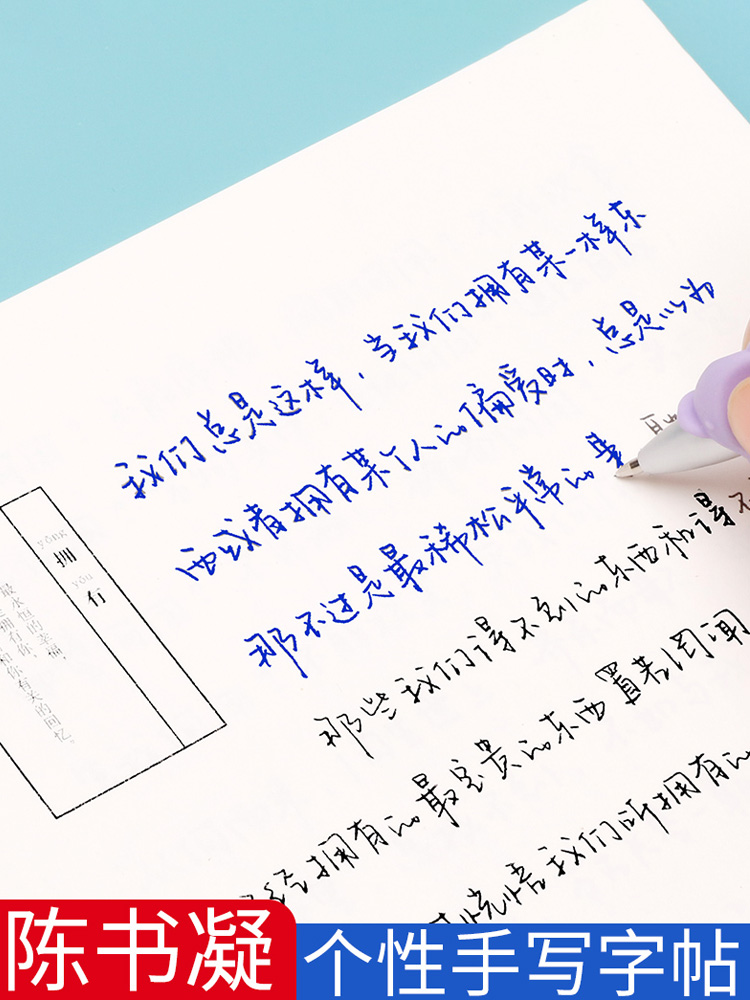 我们总是这样,当我们拥有某一样东
西或者拥有某个人的偏爱时,总是以为
那不过是最稀松平常的事
那些我们得不到的东西和得不
经拥有的最宝贵的东西置若罔闻
恍悟我们所拥有的
yōng yǒu
拥有
永恒的幸福,
拥有你,
你有关的回忆。
陈书凝
个性手写字帖